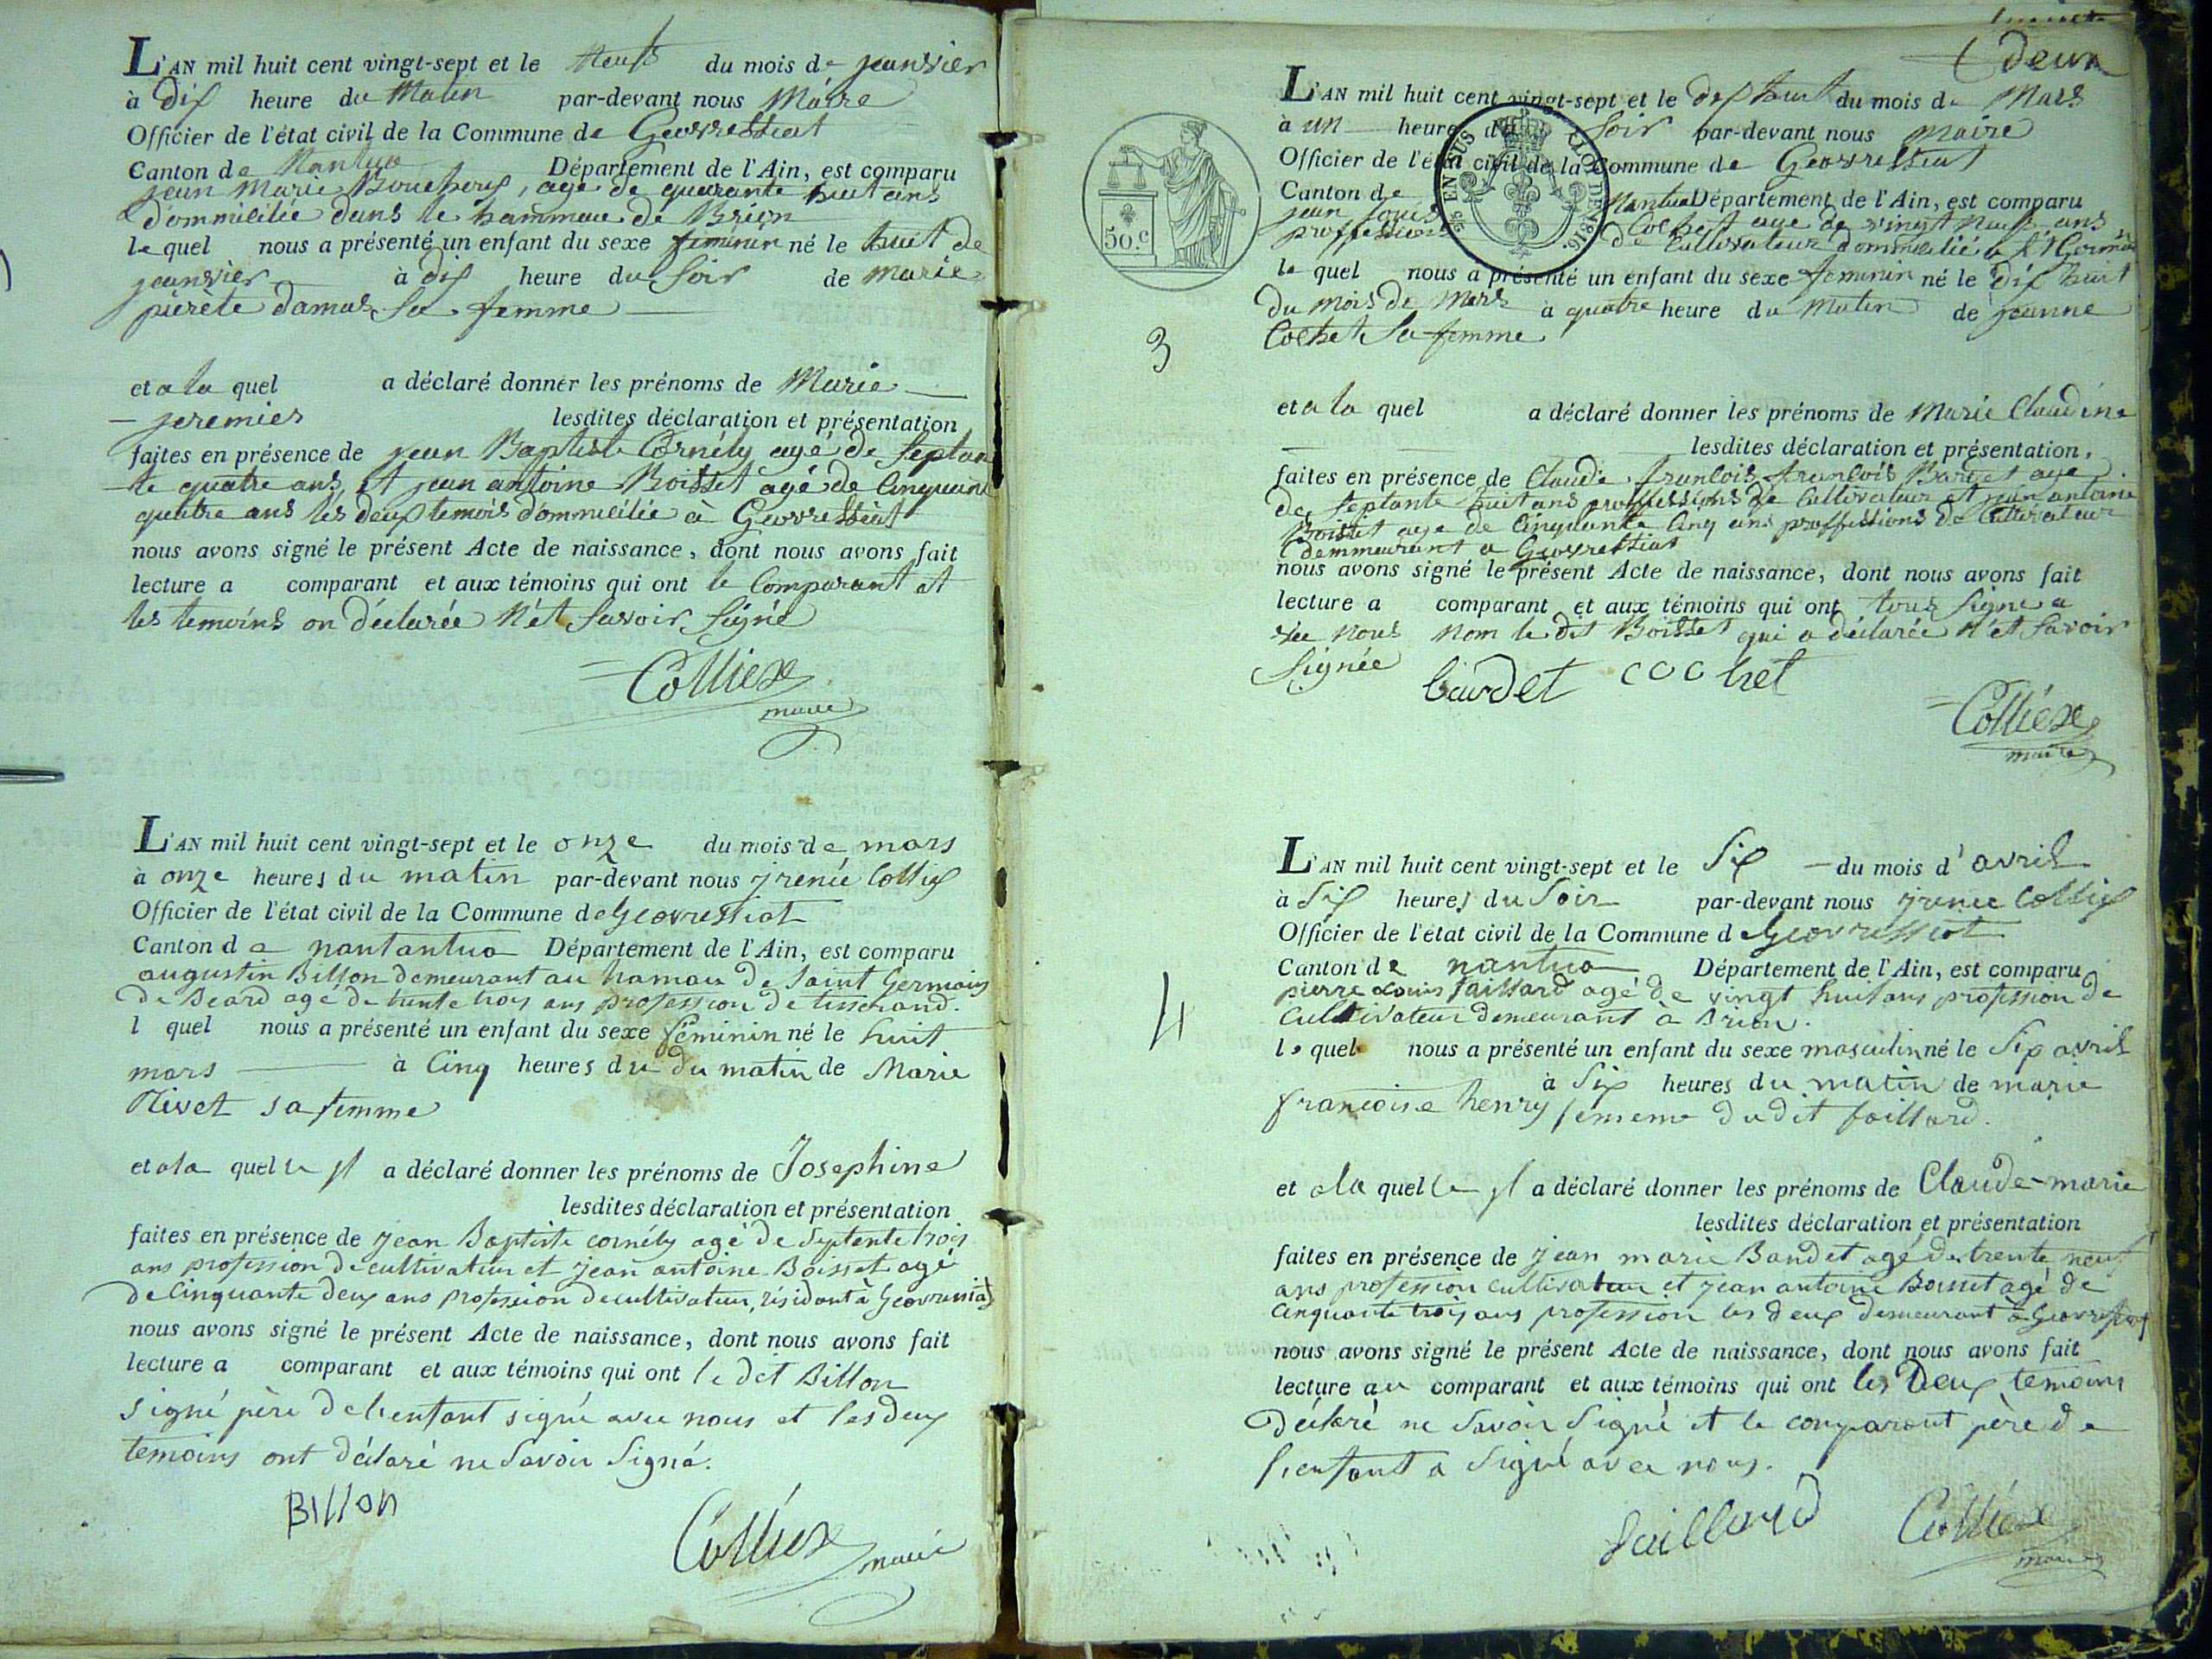 L'AN mil huit cent vingt-sept et le Neufs du mois de jeanvier
à dix heure du Matin par-devant nous Maire
Officier de l'état civil de la Commune de Geovressiat
Canton de Nantua Département de l'Ain, est comparu
jean Marie, agé de quarante huit ans
dommiciliée dans le hammeau de Brion
le quel nous a présenté un enfant du sexe feminin né le huit de
jeanvier à dix heure du Soir de Marie
pierete damas Sa femme
et a la quel a déclaré donner les prénoms de Marie
jeremies lesdites déclaration et présentation
faites en présence de jean Baptiste Cornély agé de Septan
te quatre ans et jean antoine Boisset agé de Cinquante
quatre ans les deux temois dommiciliée à Geovressiat
nous avons signé le présent Acte de naissance, dont nous avons fait
lecture a comparant et aux témoins qui ont le Comparant et
les temoins on déclarée n'èt Savoir Signé
Colliex
maire
L'AN mil huit cent vingt-sept et le onze du mois de mars
à onze heures du matin par-devant nous jrenée Colliex
Officier de l'état civil de la Commune de Geovressiat
Canton de nantantua Département de l'Ain, est comparu
augustin Billon demeurant au hamau de Saint Germain
de Beard agé de trente trois ans profession de tisserand.
l quel nous a présenté un enfant du sexe féminin né le huit
mars à Cinq heures du du matin de Marie
Nivet sa femme
et a la quelle jl a déclaré donner les prénoms de Josephine
lesdites déclaration et présentation
faites en présence de jean Baptiste cornély agé de Septente trois
ans profession de cultivateur et jean antoine Boisset agé
de Cinquante deux ans profession de cultivateur, résidant à Geovressiat
nous avons signé le présent Acte de naissance, dont nous avons fait
lecture a comparant et aux témoins qui ont le dit Billon
signé père de l'enfant signé avec nous et les deux
temoins ont déclaré ne Savoir Signé.
BILLON
Colliex
maire
deux
L'AN mil huit cent vingt-sept et le dix huit du mois de Mars
à un heure du Soir par-devant nous Maire
Officier de l'état civil de la Commune de Geovressiat
Canton de Nantua Département de l'Ain, est comparu
jean Louis Cochet age de vingt Neufs ans
proffessions de Cultivateur dommiciliée a St Germain
le quel nous a présenté un enfant du sexe feminin né le dix huit
du Mois de Mars à quatre heure du Matin de jeanne
Cochet Sa femme
50.c
EN SUS
LOI DE 1816.
3
et a la quel a déclaré donner les prénoms de Marie Claudine
lesdites déclaration et présentation,
faites en présence de Claude francois francois Bardet age
de Septante huit ans proffessions de Cultivateur et jean antoine
Boisset age de Cinquante Cinq ans proffessions de Cultivateur
demmeurant a Geovressiat
nous avons signé le présent Acte de naissance, dont nous avons fait
lecture a comparant et aux témoins qui ont tous Signe a
vec nous nom le dit Boisset qui a déclarée n'èt Savoir
Signée
bardet cochet
Colliex
maire
L'AN mil huit cent vingt-sept et le Six du mois d'avril
à Six heures du Soir par-devant nous jrenée Colliex
Officier de l'état civil de la Commune de Geovressiat
Canton de nantua Département de l'Ain, est comparu
pierre Louis faillard agé de vingt huit ans profession de
Cultivateur demeurant a Brion.
4
le quel nous a présenté un enfant du sexe masculin né le Six avril
à Six heures du matin de marie
francoise henry femme dudit faillard.
et a la quelle jl a déclaré donner les prénoms de Claude-marie
lesdites déclaration et présentation
faites en présence de jean marie Bandet agé de trente neuf
ans profession cultivateur et jean antoine Boisset agé de
Cinquante trois ans profession les deux demeurant à Geovressiat
nous avons signé le présent Acte de naissance, dont nous avons fait
lecture au comparant et aux témoins qui ont les Deux temoins
déclaré ne Savoir Signé et le comparant père de
l'enfant a Signé avec nous.
faillard
Colliex
maire